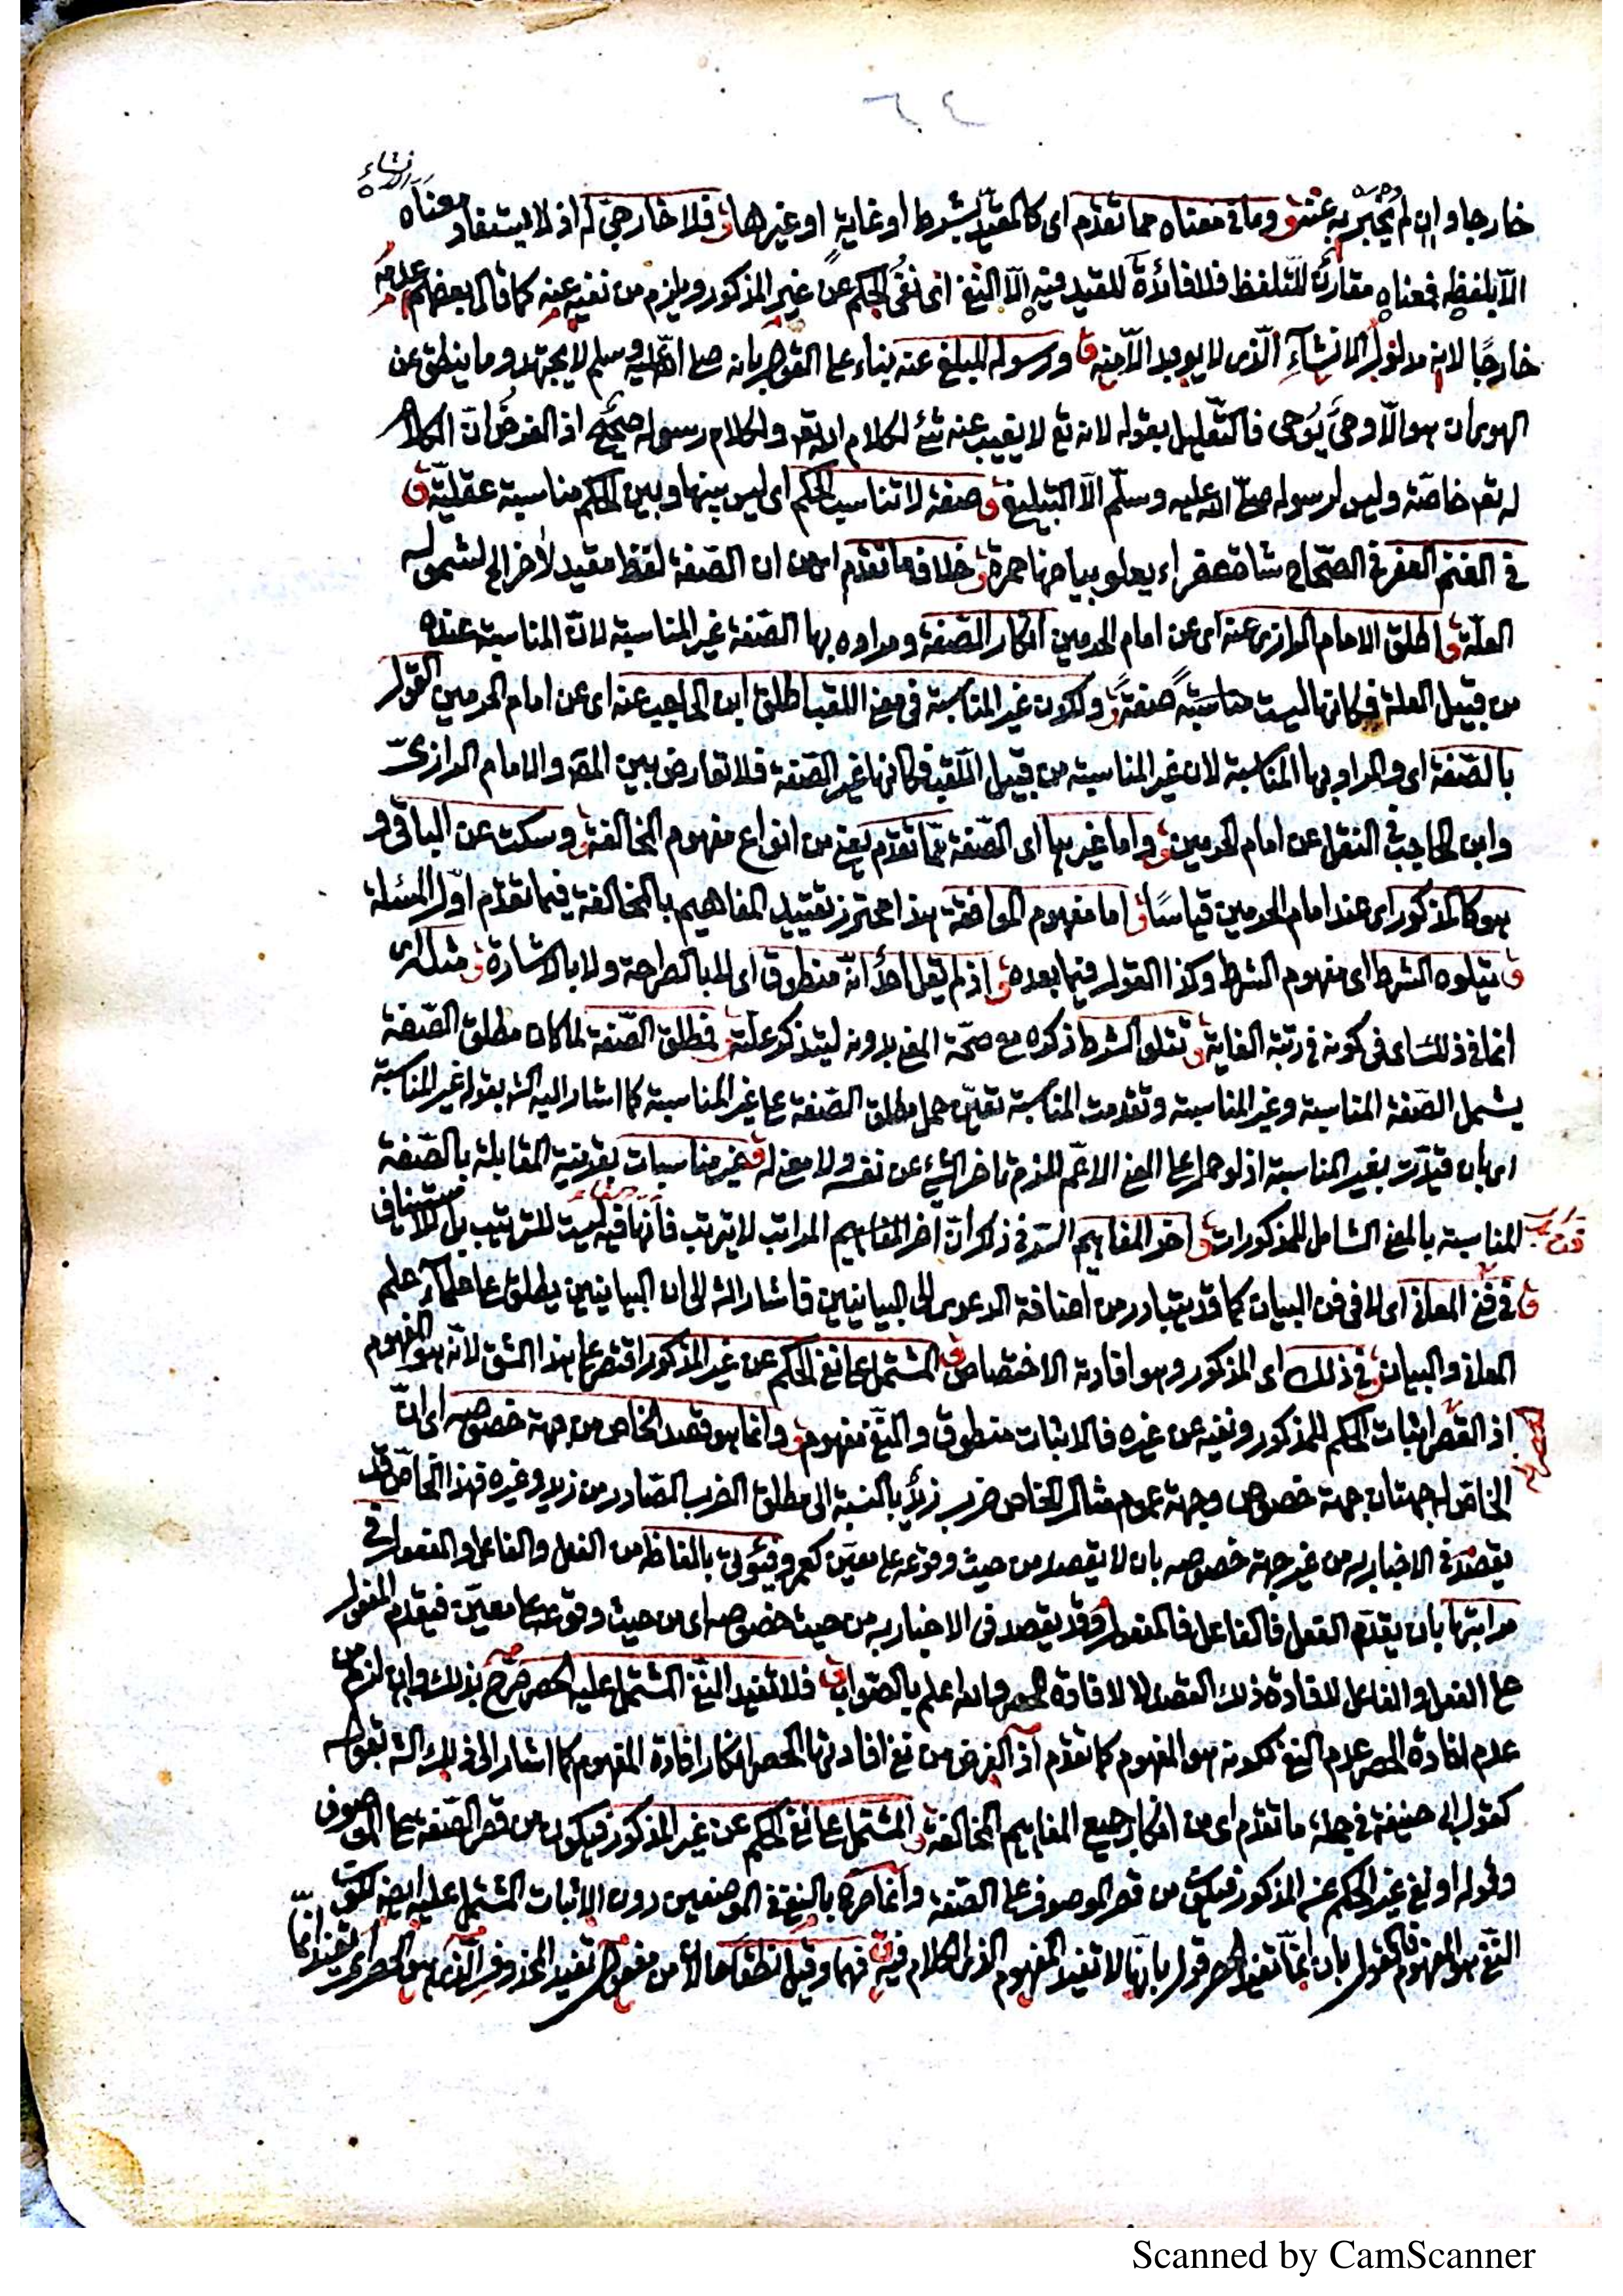 خارجا وان لم يخبر به عنه ق وما فى معناه مما تقدّم اى كالمقيّد بشرط او غاية او غيرها ق فلا خارجىّ له اذ لا يستفاد معناه
الّا بلفظه فمعناه مقارن للتلفظ فلا فائدة للقيد فيه الّا النفى اى نفى الحكم عن غير المذكور ويلزم من نفيه عنه كما قال بعضهم عدمه
خارجًا لانه مدلول الانشاء الّذى لا يوجد الّا منه ق ورسوله المبلغ عنه بناء على القول بانه صلى الله عليه وسلم لا يجتهد وما ينطق عن
الهوى ان هو الّا وحىٌ يُوحى فالتعليل بقوله لانه تع لا يغيب عنه شئ لكلام الله تع ولكلام رسوله صحيح اذ الفرض ان الكلام
له تع خاصّة وليس لرسوله صلى الله عليه وسلّم الّا التبليغ ق صفة لا تناسب الحكم اى ليس بينها وبين الحكم مناسبة عقليّة ق
فى الغنم العفر فى الصّحاح شاة عفراء يعلو بياضها حمرة ق خلاف ما تقدّم اى من ان الصّفة لفظ مقيد لآخر الخ لشموله
العلّة ق اطلق الامام الرازى عنه اى عن امام الحرمين انكار الصّفة ومراده بها الصّفة غير المناسبة لانّ المناسبة عنده
من قبيل العلة فكانها ليست مناسبةً صفةً ق ولكون غير المناسبة فى معنى اللقب اطلق ابن الحاجب عنه اى عن امام الحرمين القول
بالصّفة اى والمراد بها المناسبة لان غير المناسبة من قبيل اللّقب فكانها غير الصّفة فلا تعارض بين المص والامام الرازىّ
وابن الحاجب فى النقل عن امام الحرمين ق واما غيرها اى الصّفة ممّا تقدّم يعنى من انواع مفهوم المخالفة ق وسكت عن الباقى و
هو كالمذكور اى عند امام الحرمين قياسًا ق اما مفهوم الموافقة هذا محترز تقييد المفاهيم بالمخالفة فيما تقدّم اوّل المسئلة
ق يتلوه الشرط اى مفهوم الشرط وكذا القول فيما بعده ق اذ لم يقل احد انّه منطوق اى لا بالصراحة ولا بالاشارة ق مثله اى
انما فى ذلك اى فى كونه فى رتبة الغاية ق تتلو الشرط ذكره مع صحّة المعنى بدونه ليتذكر علّته ق فمطلق الصّفة لما كان مطلق الصّفة
يشمل الصّفة المناسبة وغير المناسبة وتقدمت المناسبة تعيّن حمل مطلق الصّفة على غير المناسبة كما اشار اليه الش بقوله غير المناسبة
اى بان قيّدت بغير المناسبة اذ لو حمل على المعنى الاعمّ للزم تاخر الشئ عن نفسه ولا معنى له ق غير مناسبات بقرينة المقابلة بالصّفة
المناسبة بالمعنى الشامل للمذكورات ق اخر المفاهيم السّر فى ذكر انّ آخر المفاهيم المراتب لا يترتب فانها فيه ليست للترتيب بل للاستيناف
ق فى فن المعانى اى لا فى فن البيان كما قد يتبادر من اضافة الدعوى الى البيانيين فاشار الش الى ان البيانيين يطلق على علماء علم
المعانى والبيان ق فى ذلك اى المذكور وهو افادة الاختصاص ق المشتمل على نفى الحكم عن غير المذكور اقتصر على هذا الشق لانّه هو المفهوم
اذ القصر اثبات الحكم للمذكور ونفيه عن غيره فالاثبات منطوق والنفى مفهوم ق وانما هو قصد الخاص من جهة خصوصه اى انّ
الخاصّ له جهتان جهة خصوص وجهة عموم مثال الخاص ضرب زيد بالنسبة الى مطلق الضرب الصّادر من زيد وغيره فهذا الخاصّ قد
يقصد فى الاخبار به من غير جهة خصوصه بان لا يقصد من حيث وقوعه على معيّن كعمرو فيؤتى بالفاظه من الفعل والفاعل والمفعول فى
مراتبها بان يقدّم الفعل فالفاعل فالمفعول وقد يقصد فى الاخبار به من حيث خصوصه اى من حيث وقوعه على معيّن فيقدم المفعول
على الفعل والفاعل لافادة ذلك القصد لا لافادة الحصر والله اعلم بالصّواب ق فلا تفيد النفى المشتمل عليه الحصر صرّح بذلك وان لزم من
عدم افادة الحصر عدم النفى لكونه هو المفهوم كما تقدّم اذ الغرض من نفى افادتها الحصر انكار افادة المفهوم كما اشار الى ذلك الش بقوله
كقول ابى حنيفة فى جملة ما تقدّم اى من انكار جميع المفاهيم المخالفة ق المشتمل على نفى الحكم عن غير المذكور فيكون من قصر الصّفة على الموصوف
وقوله او نفى غير الحكم عن المذكور فيكون من قصر الموصوف على الصّفة وانما صرّح بالنفى فى الموضعين دون الاثبات المشتمل عليه ايضا لكون
النّفى هو المفهوم فالقول بان انّما تفيد الحصر قول بانّها لا تفيد المفهوم الذى الكلام فيه ق فهما وقيل نطقا حالا من مفعول تفيد المحذوف الّذى هو الحصر اى تفيد انّما